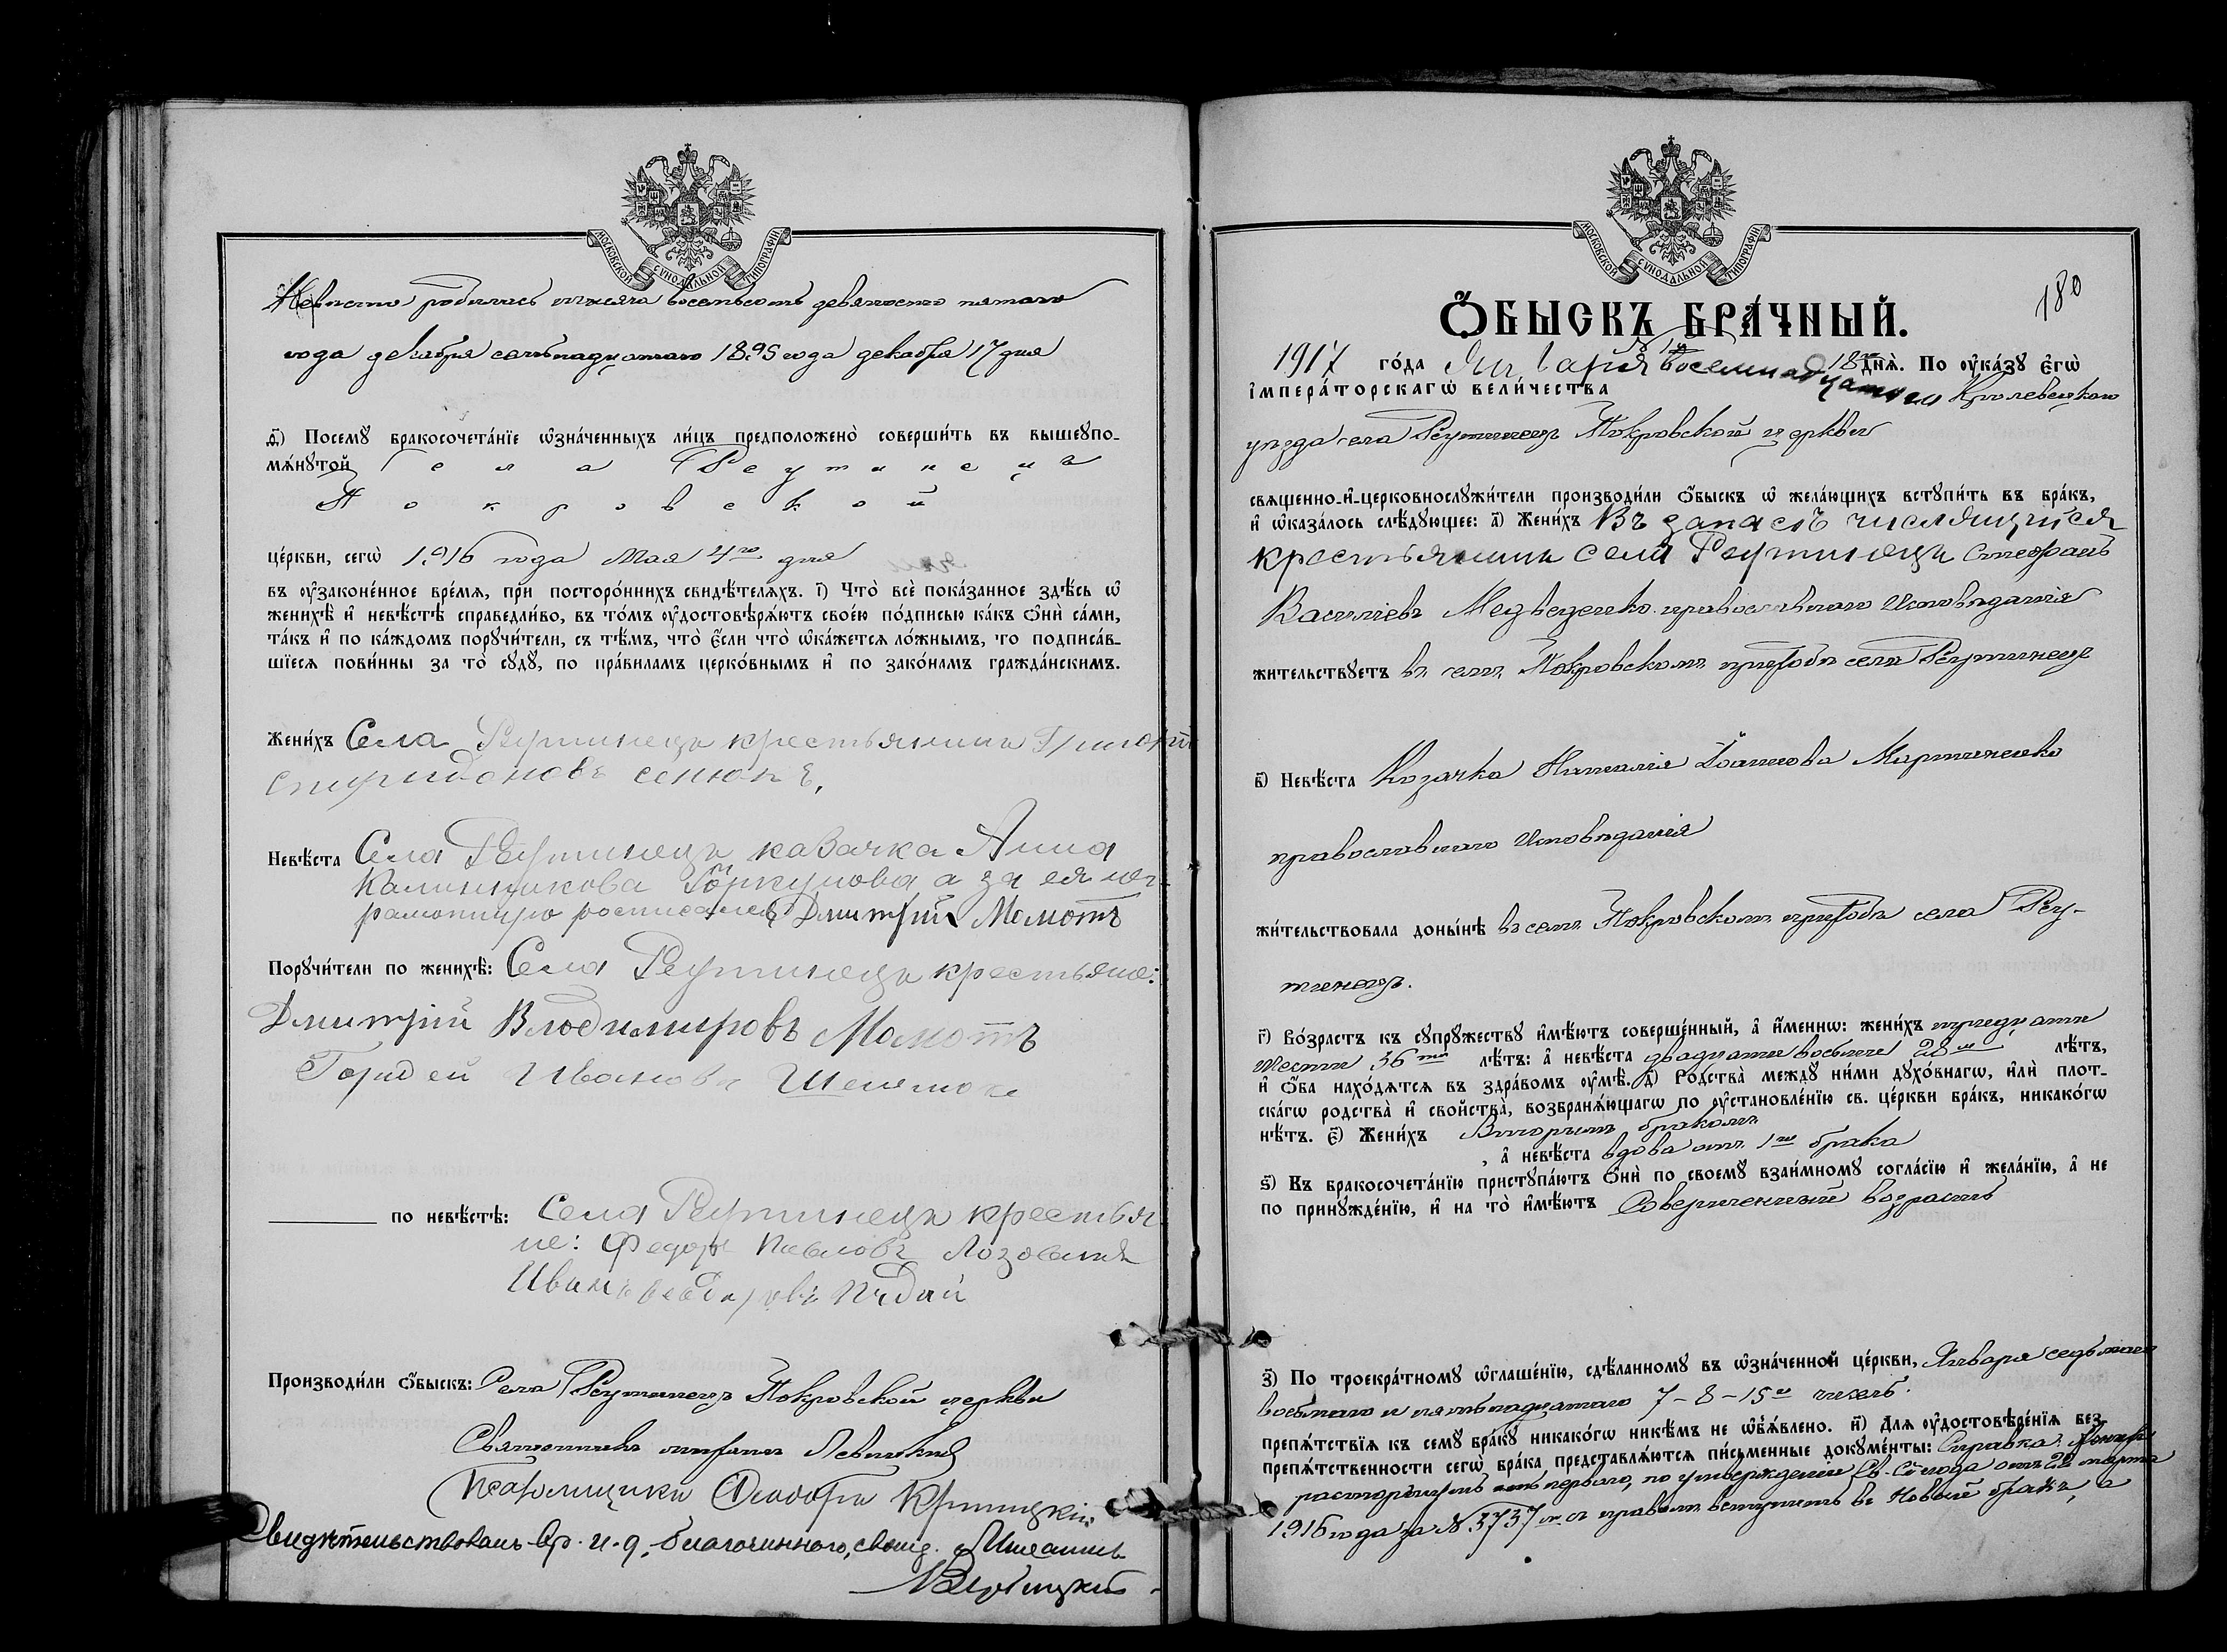 МОСКОВСКОЙ СѴНОДАЛЬНОЙ ТИПОГРАФІИ
Невѣста родилась тысяча восемьсотъ девяносто пятаго
года декабря семьнадцатаго 1895 года декабря 17 дня
ѳ҃) Посемꙋ бракосочета́нїе ѡ҆зна́ченныхъ ли́цъ предположено̀ соверши́ть въ вышеꙋпо-
мѧ́нꙋтой Села Реутинецъ
Покровской
це́ркви, сегѡ̀ 1916 года Мая 4го дня
въ ᲂу҆законе́нное вре́мѧ, прѝ посторо́ннихъ свидѣ́телѧхъ. і҃) Что̀ всѐ пока́занное здѣ́сь ѡ҆
женихѣ̀ и҆ невѣ́стѣ справедли́во, въ то́мъ ᲂу҆достовѣрѧ́ютъ свое́ю по́дписью ка́къ ѻ҆нѝ са́ми,
та́къ и҆ по ка́ждомъ порꙋчи́тели, съ тѣ́мъ, что̀ є҆́сли что̀ ѡ҆ка́жетсѧ ло́жнымъ, то подписа́в-
шїесѧ пови́нны за то̀ сꙋдꙋ̀, по пра́виламъ церко́внымъ и҆ по зако́намъ гражда́нскимъ.
Жени́хъ Села Реутинецъ крестьянинъ Григорій
Спиридоновъ Сенюкъ,
Невѣ́ста Села Реутинецъ казачка Анна
Калинникова а за ея не-
рамотную росписался Дмитрій Момотъ
Порꙋчи́тели по женихѣ̀: Села Реутинецъ крестьяне:
Дмитрій Владимировъ Момотъ
Гордей Ивановъ
по невѣ́стѣ: Села Реутинецъ крестья-
не: Федоръ Павловъ
Иванъ
Производи́ли ѻ҆́быскъ: Села Реутинецъ Покровской церкви
Священникъ Левицкій
Псаломщикъ Криницкій
Свидѣтельствовалъ Вр. и. д. благочиннаго, свящ.
Вербицкій
МОСКОВСКОЙ СѴНОДАЛЬНОЙ ТИПОГРАФІИ
180
Ѻ҆́БЫСКЪ БРА́ЧНЫЙ.
1917 го́да Января восемнадцатаго 18 днѧ̀. По ᲂу҆ка́зꙋ є҆гѡ̀
і҆мпера́торскагѡ вели́чества Кролевецкаго
уѣзда села Реутинецъ Покровской церкви
свѧщенно-и҆-церковнослꙋжи́тели производи́ли ѻ҆́быскъ ѡ҆ жела́ющихъ встꙋпи́ть въ бра́къ,
и҆ ѡ҆каза́лось слѣ́дꙋющее: а҃) Жени́хъ Въ запасѣ числящийся
крестьянинъ села Реутинецъ Стефанъ
Василіевъ Медведенко православнаго исповѣданія
жи́тельствꙋетъ въ семъ Покровскомъ приходѣ села Реутинецъ
в҃) Невѣ́ста Козачка Наталія Іоаннова Мартиненко
православнаго исповѣданія
жи́тельствовала доны́нѣ въ семъ Покровскомъ приходѣ села Реу-
тинецъ.
г҃) Во́зрастъ къ сꙋпрꙋ́жествꙋ и҆мѣ́ютъ соверше́нный, а҆ и҆́меннѡ: жени́хъ тридцати
шести 36ти лѣ́тъ: а҆ невѣ́ста двадцати восьми 28и лѣ́тъ,
и҆ ѻ҆́ба нахо́дѧтсѧ въ здра́вомъ ᲂу҆мѣ̀. д҃) Родства̀ междꙋ ни́ми дꙋхо́внагѡ, и҆лѝ плот-
ска́гѡ родства̀ и҆ сво́йства, возбранѧ́ющагѡ по ᲂу҆становле́нїю св. це́ркви бра́къ, никако́гѡ
нѣ́тъ. є҃) Жени́хъ Вторымъ бракомъ
, а҆ невѣ́ста вдова отъ 1го брака
ѕ҃) Въ бракосочета́нїю пристꙋпа́ютъ ѻ҆нѝ по своемꙋ̀ взаи́мномꙋ согла́сїю и҆ жела́нїю, а҆ не
по принꙋжде́нїю, и҆ на то̀ и҆мѣ́ютъ Совершенный возрастъ
з҃) По троекра́тномꙋ ѡ҆глаше́нїю, сдѣ́ланномꙋ въ ѡ҆зна́ченной це́ркви, Января седьмаго
восьмаго и пятьнадцатаго 7-8-15го чиселъ.
препѧ́тствїѧ къ семꙋ̀ бра́кꙋ никако́гѡ никѣ́мъ не ѡ҆б̾ѧ́влено. и҃) Длѧ ᲂу҆достовѣре́нїѧ без-
препѧ́тственности сегѡ̀ бра́ка представлѧ́ютсѧ пи́сьменные докꙋме́нты: Справка
расторгнутъ перваго, по утвержденіи Св. Сѵнода отъ 22 марта
1916 года за № 3737 съ правомъ вступить въ новый бракъ, а